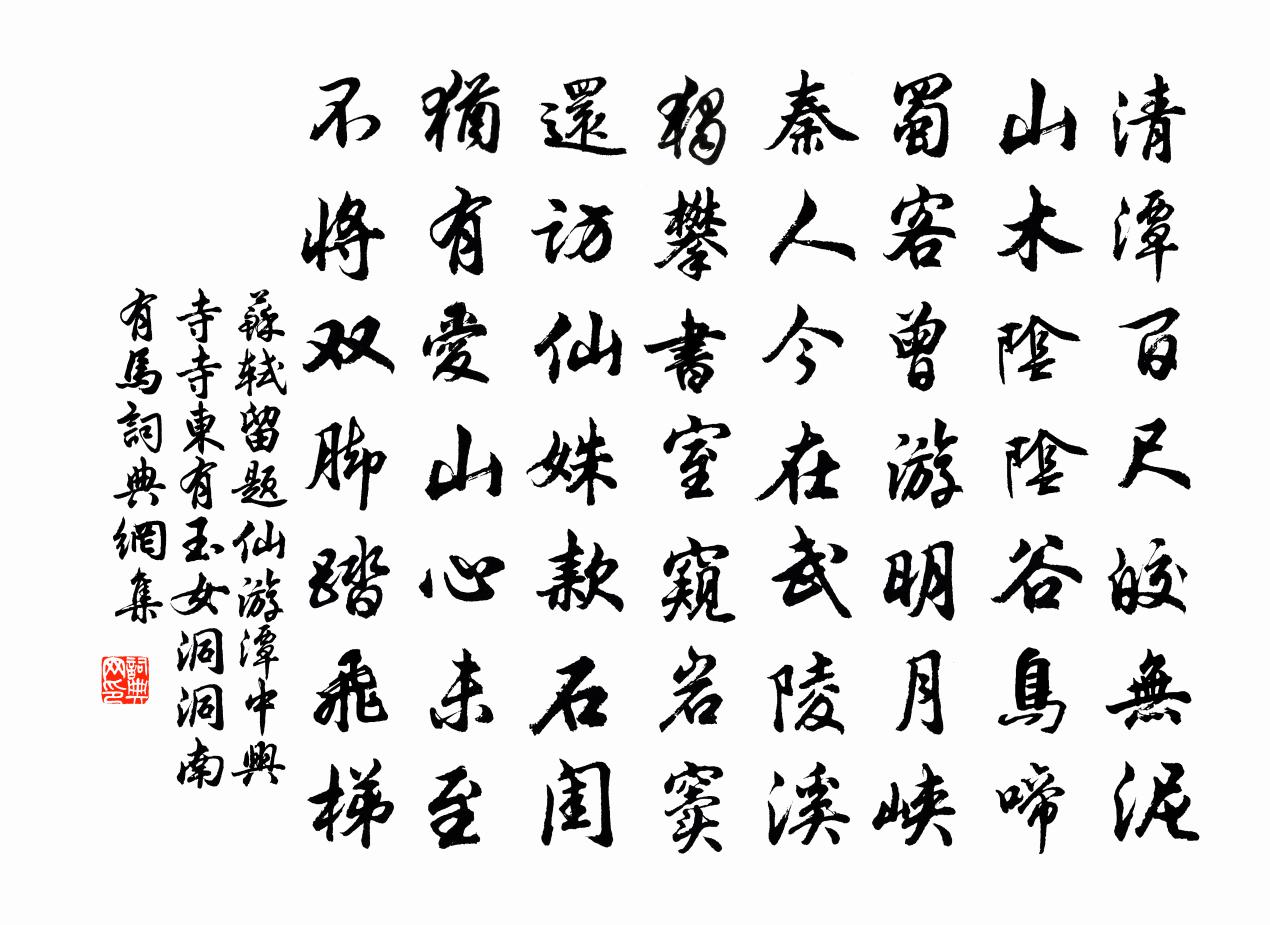 清潭百尺皎無泥
山木陰陰谷鳥啼
蜀客曾游明月峽
秦人今在武陵溪
獨攀書室窺岩竇
還訪仙姝款石閨
猶有愛山心未至
不將双脚踏飛梯
蘇軾留题仙游潭中興
寺寺東有玉女洞洞南
有馬詞典網集
詞典网印